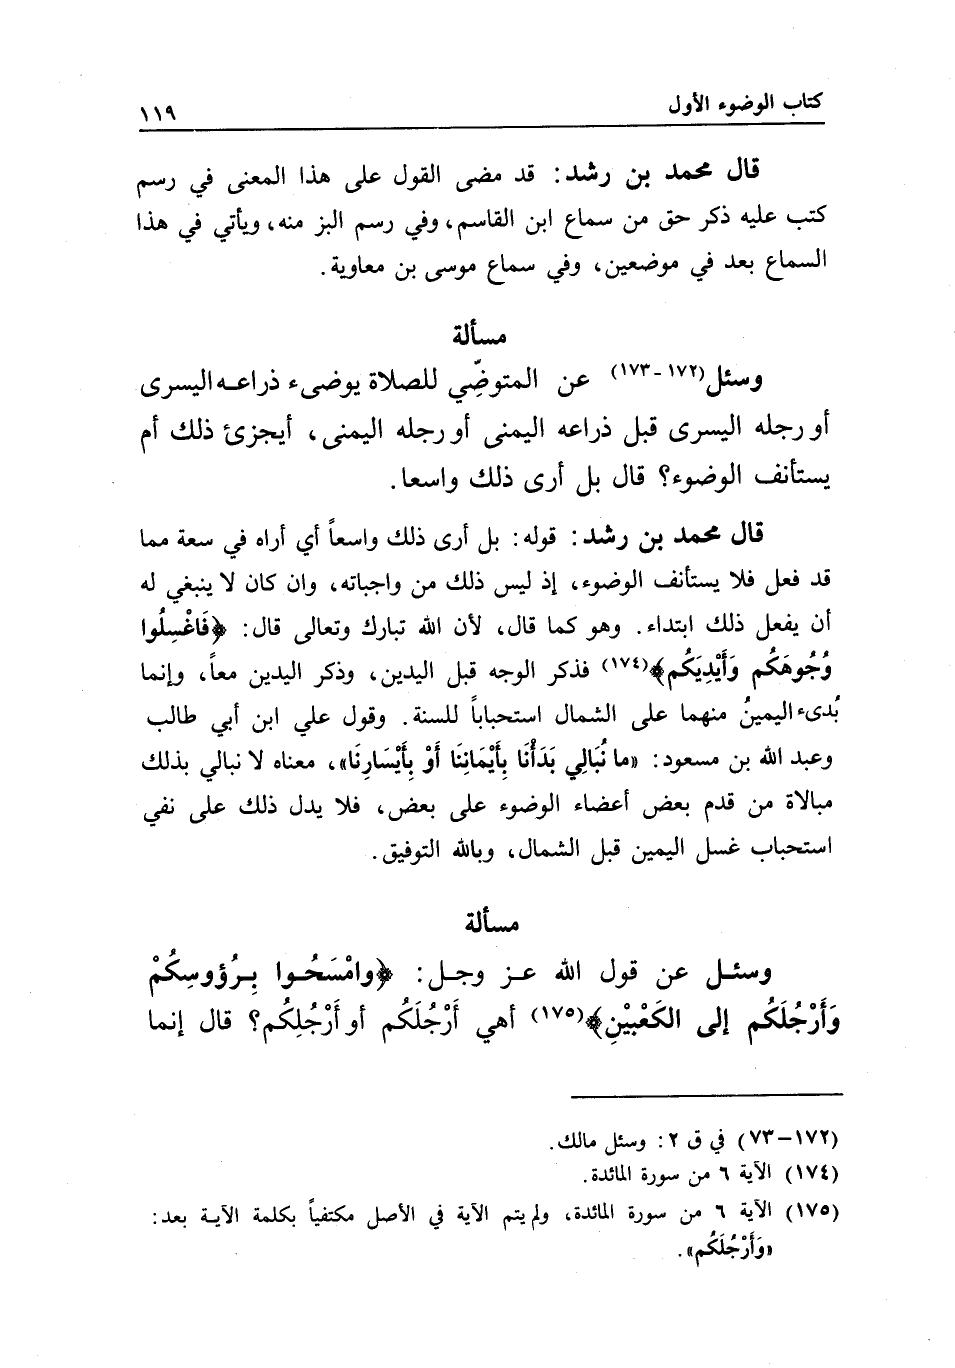 كتاب الوضوء الأول
١١٩
قال محمد بن رشد: قد مضى القول على هذا المعنى في رسم
كتب عليه ذكر حق من سماع ابن القاسم، وفي رسم البز منه، ويأتي في هذا
السماع بعد في موضعين، وفي سماع موسى بن معاوية.
مسألة
وسئل(١٧٢-١٧٣) عن المتوضِّي للصلاة يوضىء ذراعه اليسرى
أو رجله اليسرى قبل ذراعه اليمنى أو رجله اليمنى، أيجزئ ذلك أم
يستأنف الوضوء؟ قال بل أرى ذلك واسعا.
قال محمد بن رشد: قوله: بل أرى ذلك واسعاً أي أراه في سعة مما
قد فعل فلا يستأنف الوضوء، إذ ليس ذلك من واجباته، وان كان لا ينبغي له
أن يفعل ذلك ابتداء. وهو كما قال، لأن الله تبارك وتعالى قال: ﴿فَاغْسِلُوا
وُجُوهَكُم وَأَيْدِيَكُم﴾(١٧٤) فذكر الوجه قبل اليدين، وذكر اليدين معاً، وإنما
بُدىء اليمينُ منهما على الشمال استحباباً للسنة. وقول علي ابن أبي طالب
وعبد الله بن مسعود: «ما نُبَالِي بَدَأْنَا بِأَيْمَانِنَا أَوْ بِأَيْسَارِنَا»، معناه لا نبالي بذلك
مبالاة من قدم بعض أعضاء الوضوء على بعض، فلا يدل ذلك على نفي
استحباب غسل اليمين قبل الشمال، وبالله التوفيق.
مسألة
وسئل عن قول الله عز وجل: ﴿وامْسَحُوا بِرُؤوسِكُمْ
وَأَرْجُلَكُم إلى الكَعْبَيْنِ﴾(١٧٥) أهي أَرْجُلَكُم أو أَرْجُلِكُم؟ قال إنما
(١٧٢-٧٣) في ق ٢: وسئل مالك.
(١٧٤) الآية ٦ من سورة المائدة.
(١٧٥) الآية ٦ من سورة المائدة، ولم يتم الآية في الأصل مكتفياً بكلمة الآية بعد:
«وَأَرْجُلَكُم».